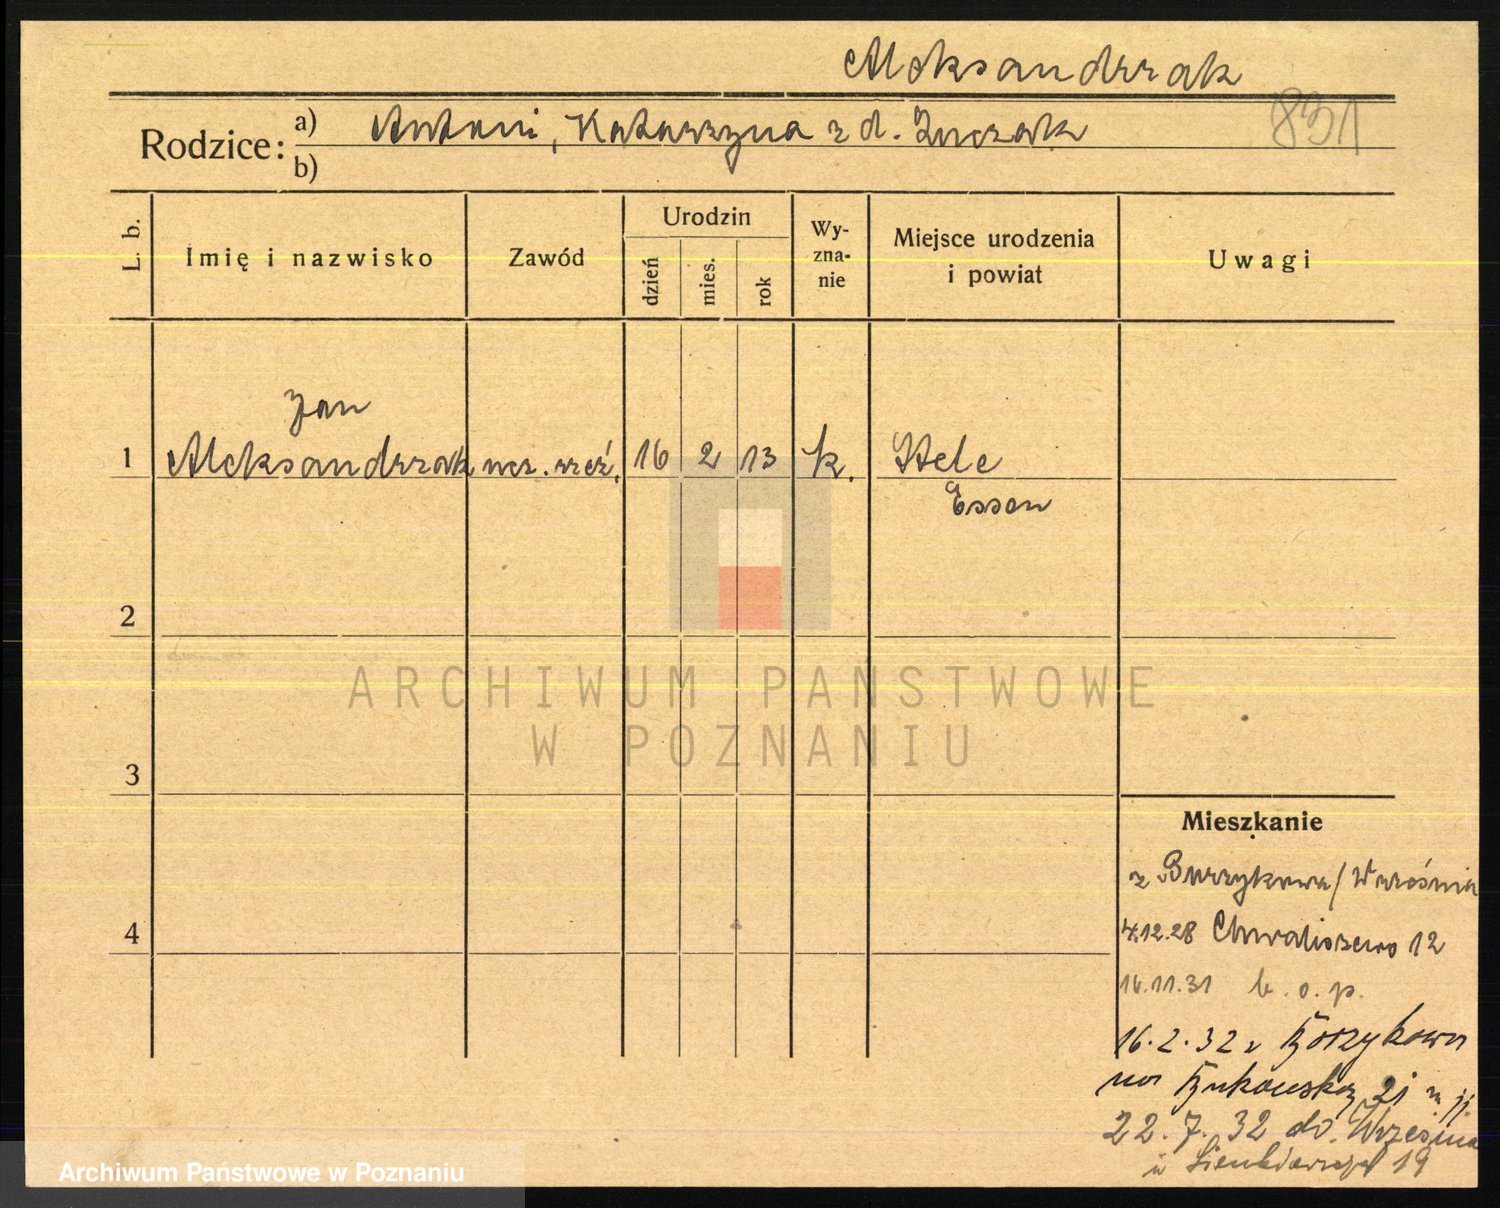 Aleksandrzak
Rodzice: a) Antoni, Katarzyna z d. Zuczak 831
b)
L. b. Imię i nazwisko Zawód Urodzin dzień mies. rok Wy-zna-nie Miejsce urodzenia i powiat Uwagi
Jan
1 Aleksandrzak ucz. rzeź. 16 2 13 k. Stele
Essen
2
ARCHIWUM PAŃSTWOWE
W POZNANIU
3
Mieszkanie
z Burzykowa/Września
4 4.12.28 Chwaliszewo 12
16.11.31 b. o. p.
16.2.32 z Borzykowa
na Bukowską 21 m
22.7.32 do Września
19
Archiwum Państwowe w Poznaniu